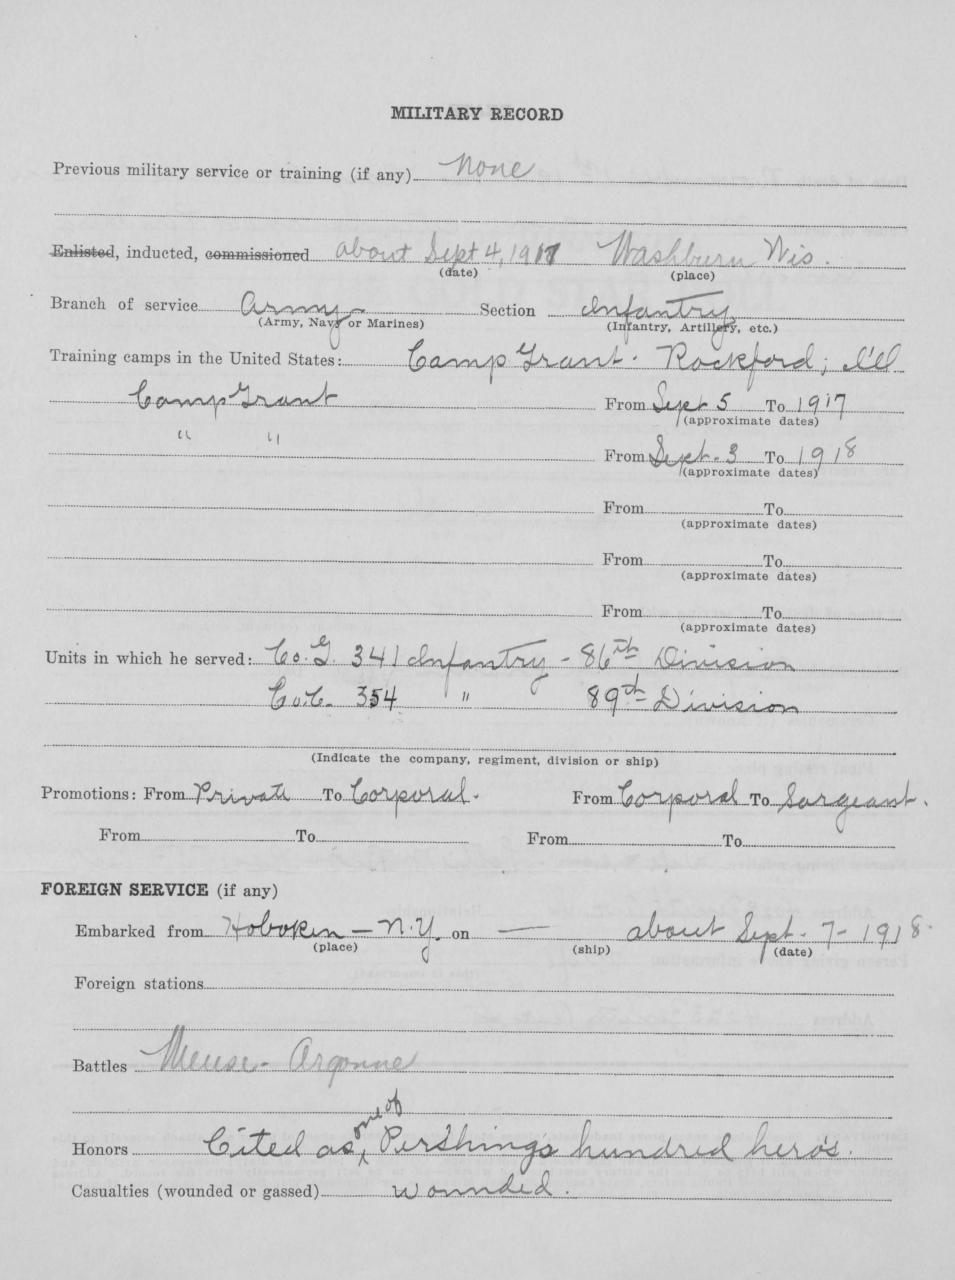 MILITARY RECORD
Previous military service or training (if any) None
Enlisted, inducted, commissioned about Sept 4, 1917 Washburn Wis.
(date) (place)
Branch of service Army Section Infantry
(Army, Navy or Marines) (Infantry, Artillery, etc.)
Training camps in the United States: Camp Grant. Rockford, Ill
Camp Grant From Sept 5 To 1917
(approximate dates)
" " From Sept. 3 To 1918
(approximate dates)
From To
(approximate dates)
From To
(approximate dates)
From To
(approximate dates)
Units in which he served: Co. G. 341 Infantry - 86th Division
Co. C. 354 " 89th Division
(Indicate the company, regiment, division or ship)
Promotions: From Private To Corporal. From Corporal To Sargeant.
From To From To
FOREIGN SERVICE (if any)
Embarked from Hoboken - N.Y. on — about Sept. 7 - 1918.
(place) (ship) (date)
Foreign stations
Battles Meuse - Argonne
Honors Cited as one of Pershing's hundred hero's.
Casualties (wounded or gassed) wounded.